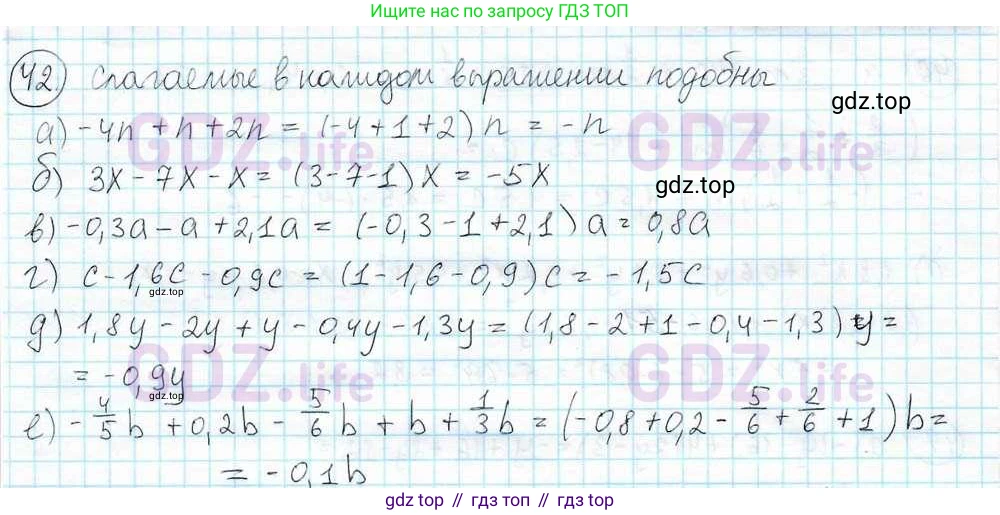 Ищите нас по запросу ГДЗ ТОП
42 Слагаемые в каждом выражении подобны
gdz.top
а) -4n + n + 2n = (-4 + 1 + 2) n = -n
GDZ.life GDZ.life
б) 3x - 7x - x = (3 - 7 - 1) x = -5x
gdz.top
в) -0,3a - a + 2,1a = (-0,3 - 1 + 2,1) a = 0,8a
г) c - 1,6c - 0,9c = (1 - 1,6 - 0,9) c = -1,5c
gdz.top
д) 1,8y - 2y + y - 0,4y - 1,3y = (1,8 - 2 + 1 - 0,4 - 1,3) y =
GDZ.life GDZ.life
= -0,9y
gdz.top
е) - 4/5 b + 0,2b - 5/6 b + b + 1/3 b = (-0,8 + 0,2 - 5/6 + 2/6 + 1) b =
= -0,1b
gdz.top // гдз.топ // gdz.top